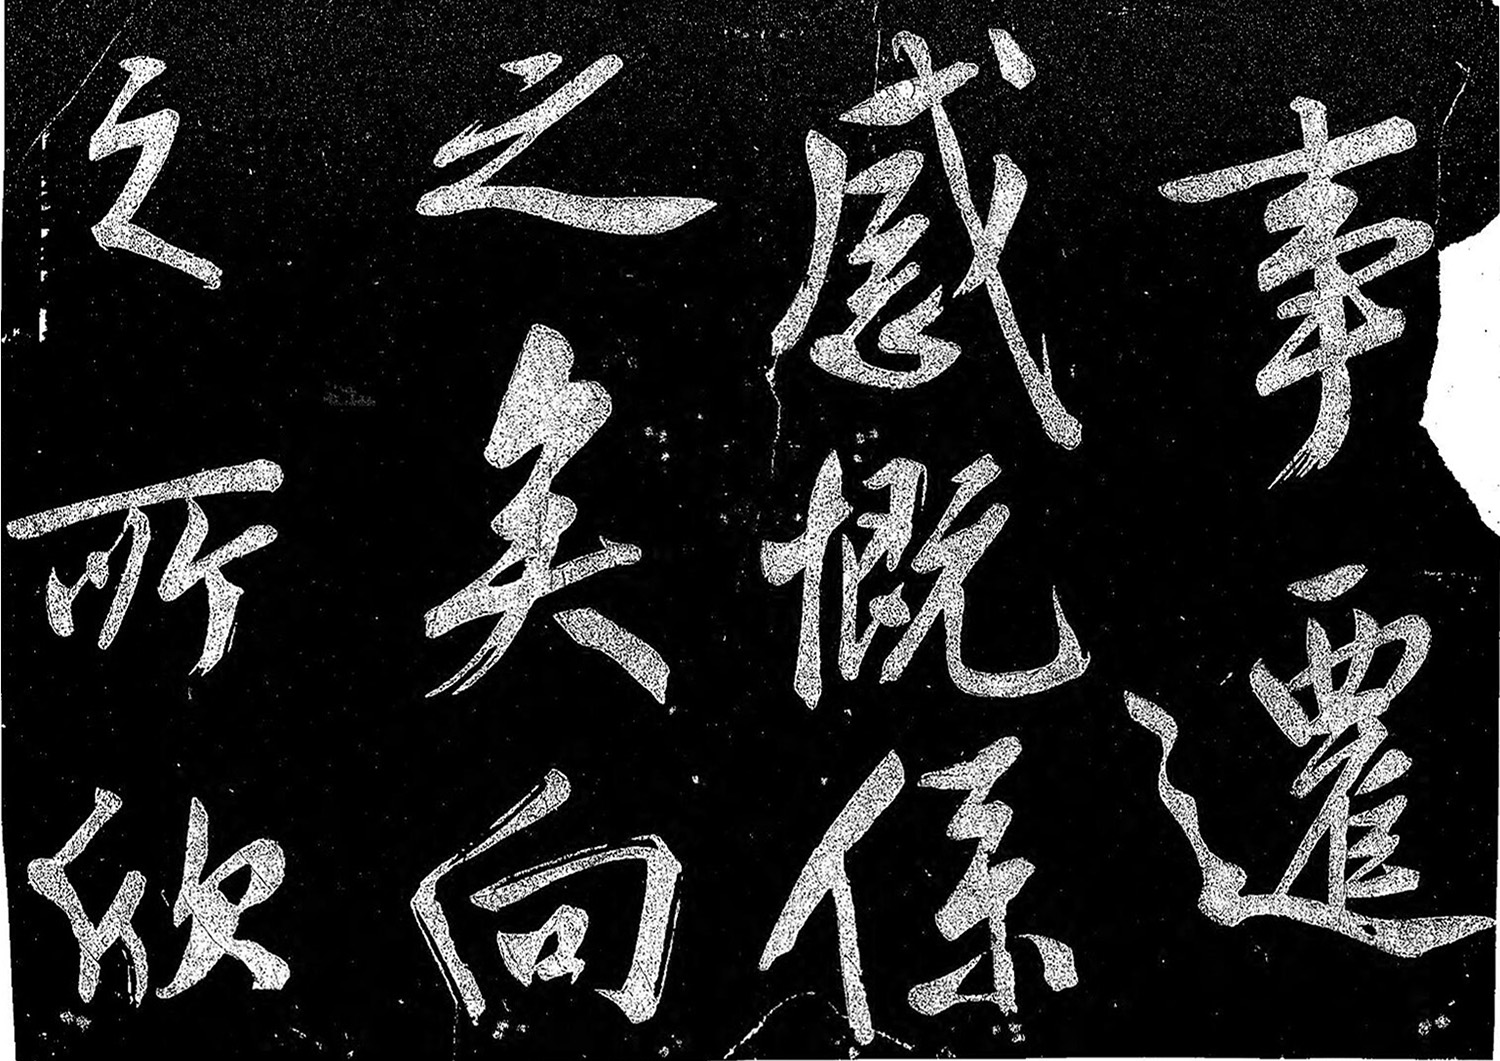 事遷
感慨係
之矣向
之所欣